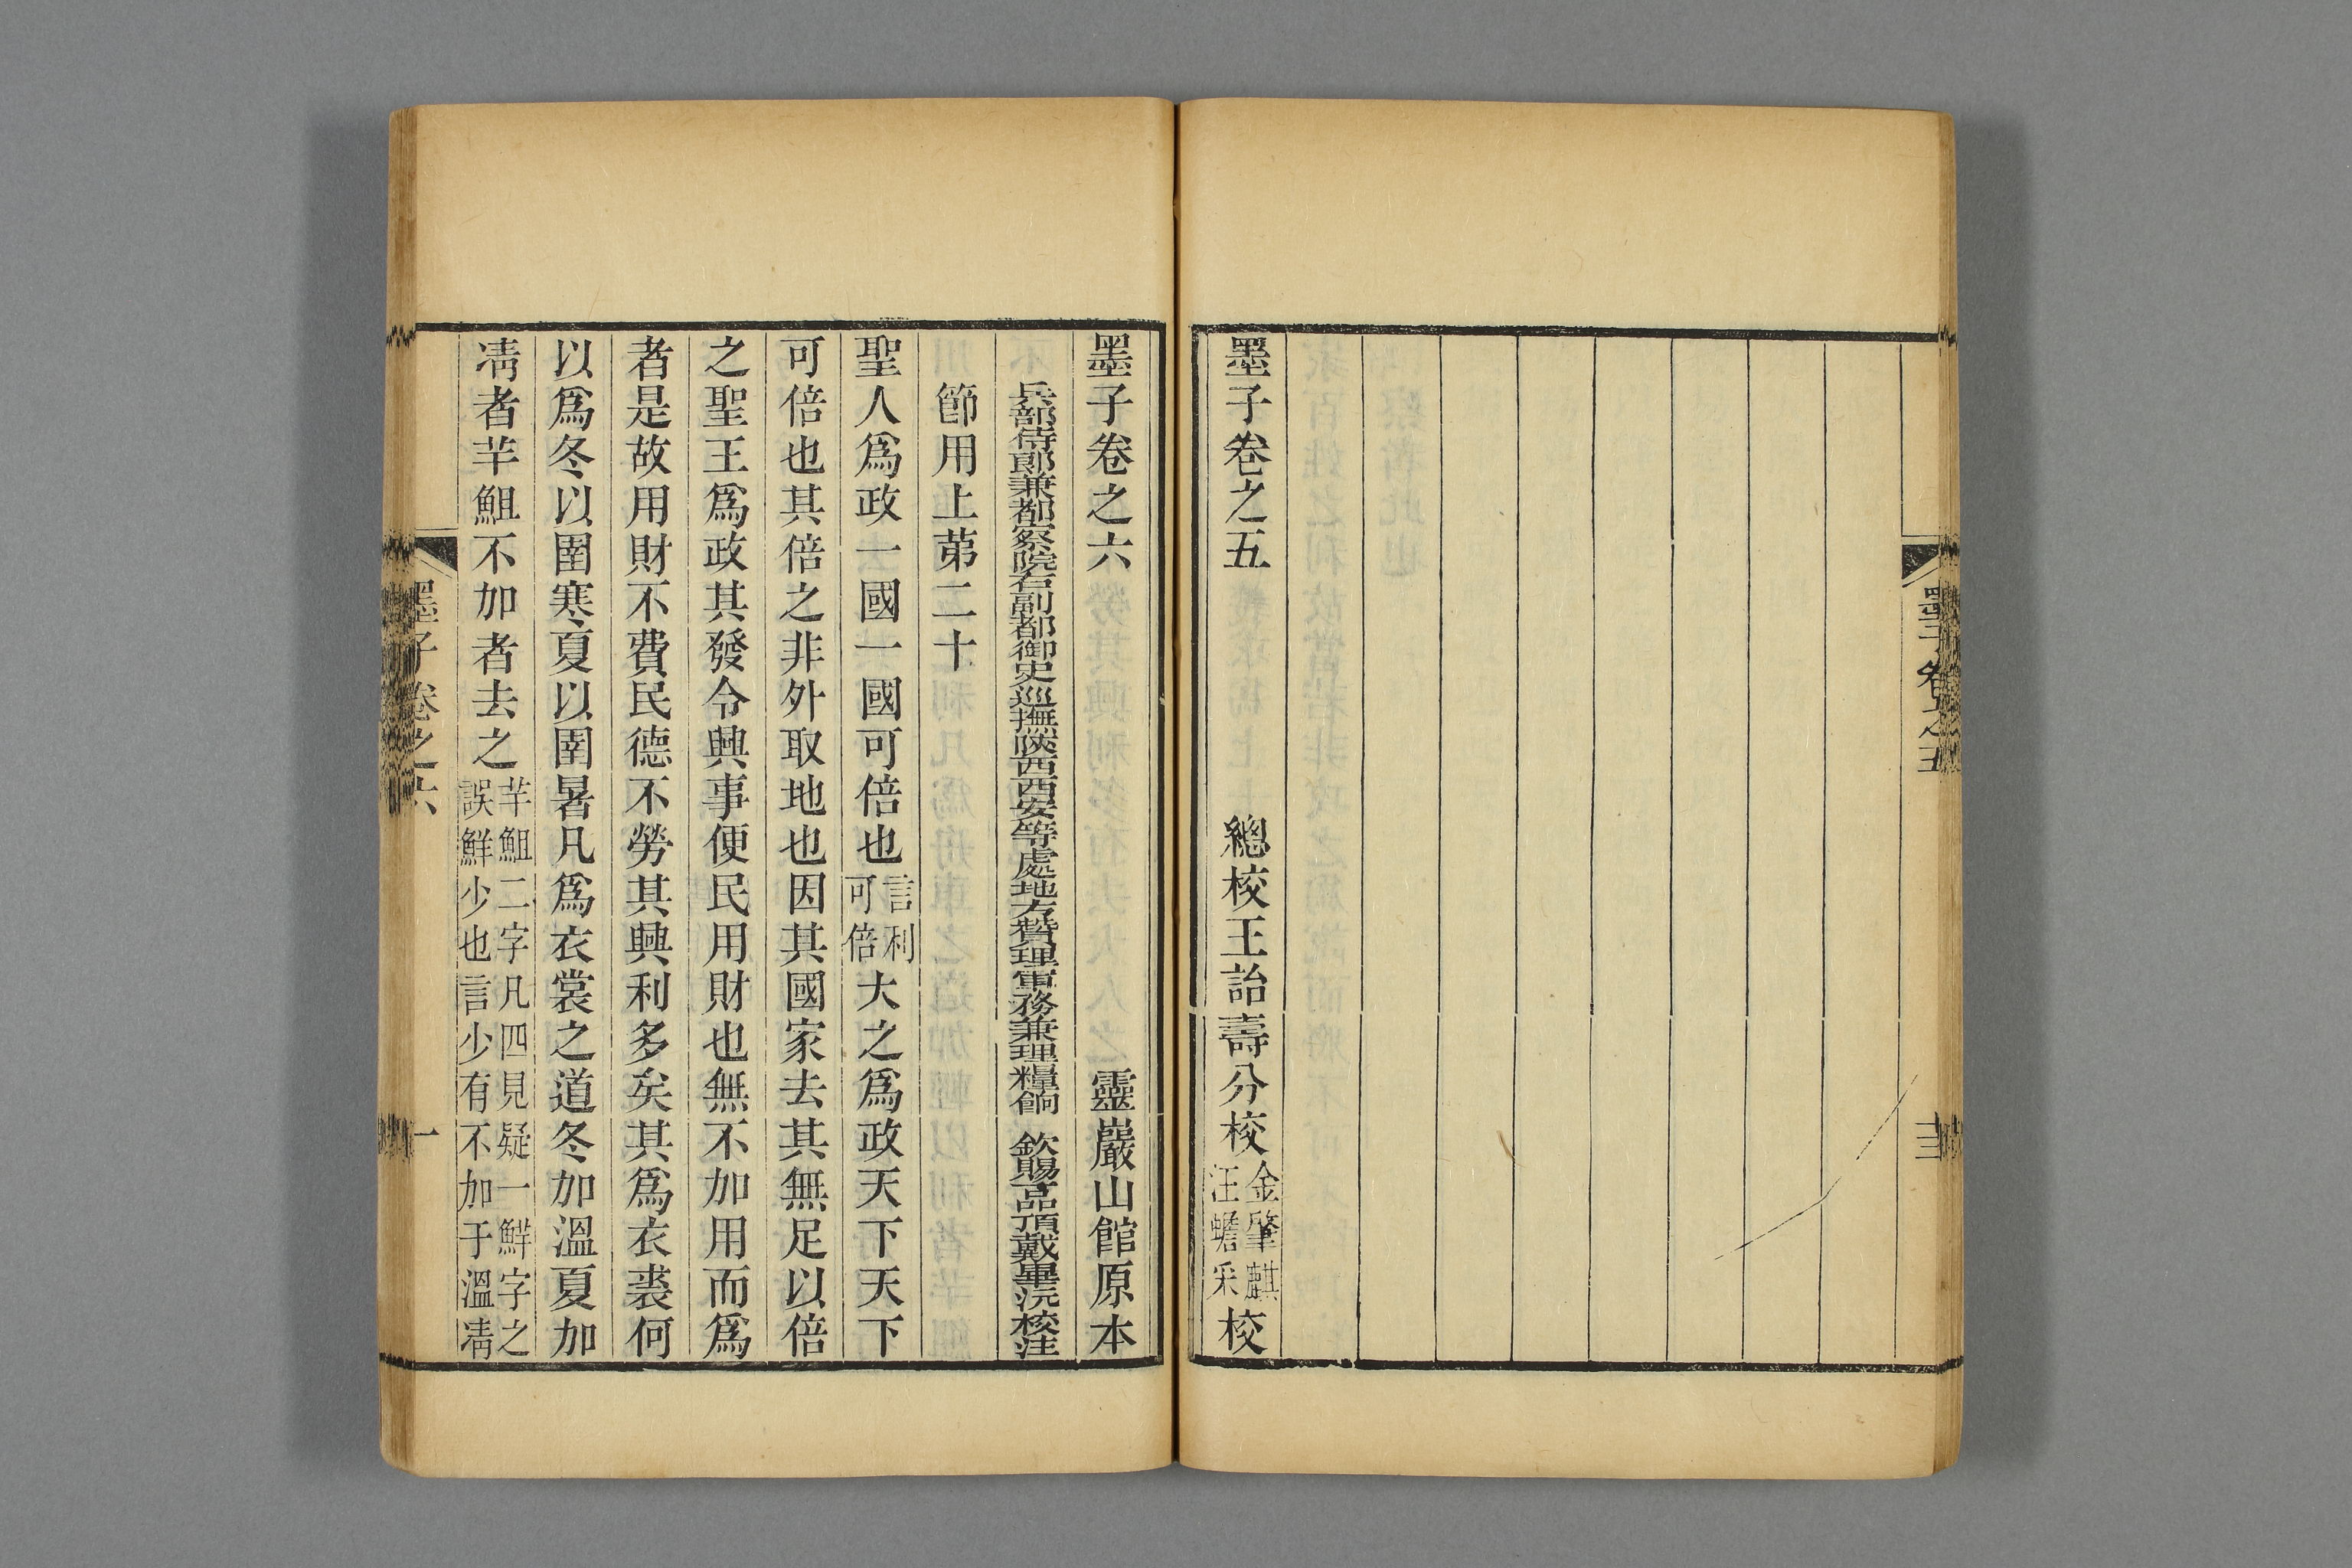 墨子卷之五
墨子卷之五　總校王詒壽分校金肇麒汪蟾采校
墨子卷之六　靈巖山館原本
兵部侍郎兼都察院右副都御史巡撫陝西西安等處地方贊理軍務兼理糧餉　欽賜一品頂戴畢沅校注
節用上第二十
聖人爲政一國一國可倍也言利可倍大之爲政天下天下
可倍也其倍之非外取地也因其國家去其無足以倍
之聖王爲政其發令興事便民用財也無不加用而爲
者是故用財不費民德不勞其興利多矣其爲衣裘何
以爲冬以圉寒夏以圉暑凡爲衣裳之道冬加溫夏加
凊者芊䱉不加者去之芊䱉二字凡四見疑一鮮字之誤鮮少也言少有不加于溫凊
墨子卷之六
一